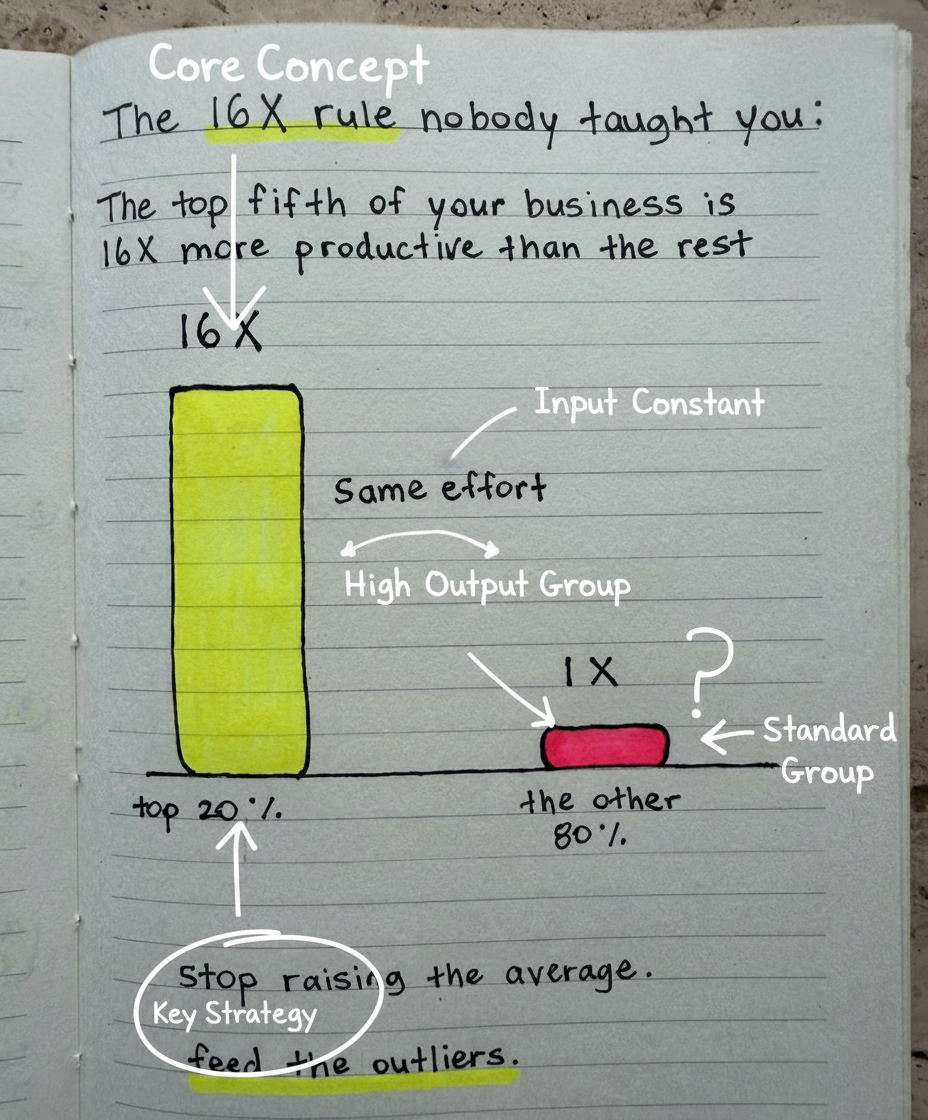 Core Concept
The 16X rule nobody taught you:
The top fifth of your business is
16X more productive than the rest
16X
Input Constant
Same effort
High Output Group
1X
?
Standard
Group
top 20%
the other
80%
Stop raising the average.
Key Strategy
feed the outliers.